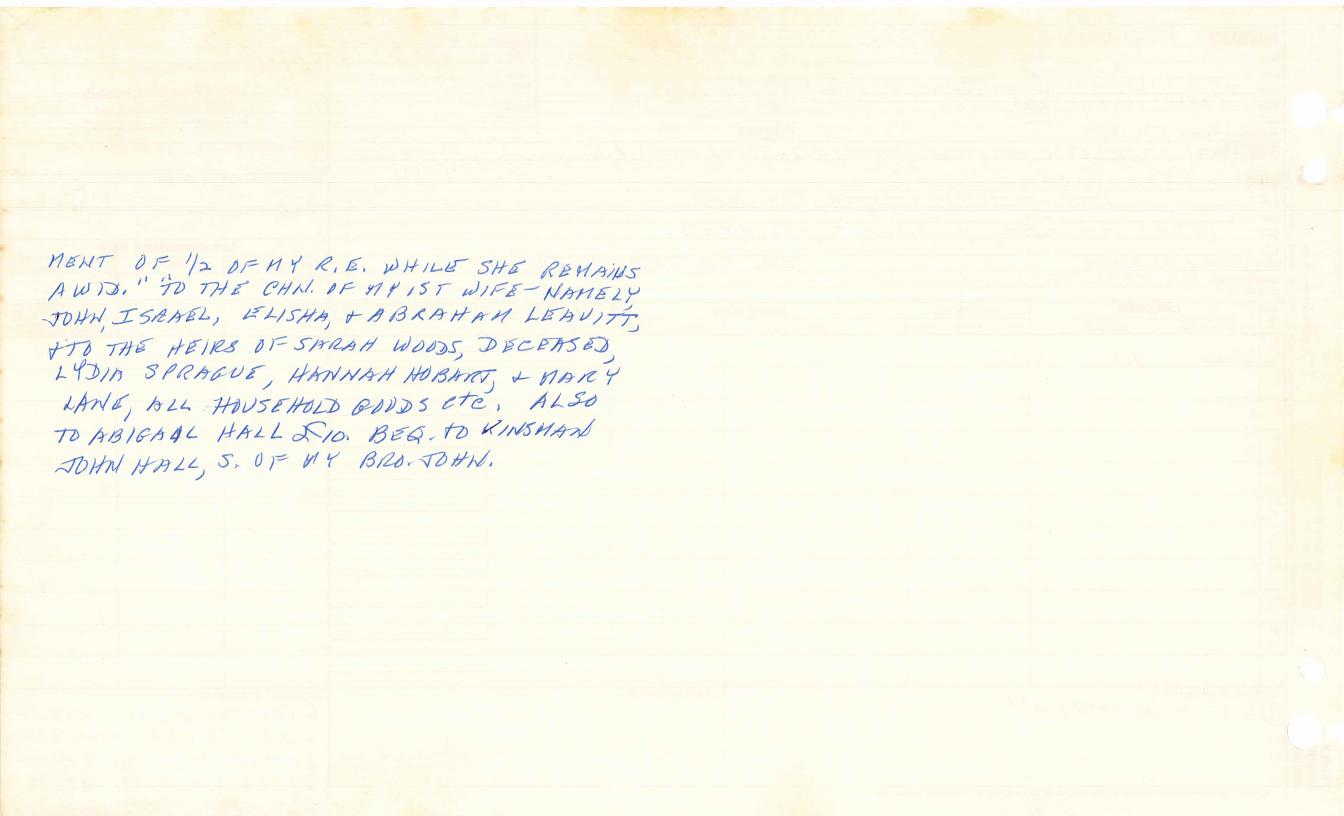 MENT OF 1/2 OF MY R.E. WHILE SHE REMAINS
A WID." "TO THE CHN. OF MY 1ST WIFE - NAMELY
JOHN, ISRAEL, ELISHA, & ABRAHAM LEAVITT,
& TO THE HEIRS OF SARAH WOODS, DECEASED,
LYDIA SPRAGUE, HANNAH HOBART, & MARY
LANE, ALL HOUSEHOLD GOODS etc. ALSO
TO ABIGAIL HALL £10. BEQ. TO KINSMAN
JOHN HALL, S. OF MY BRO. JOHN.